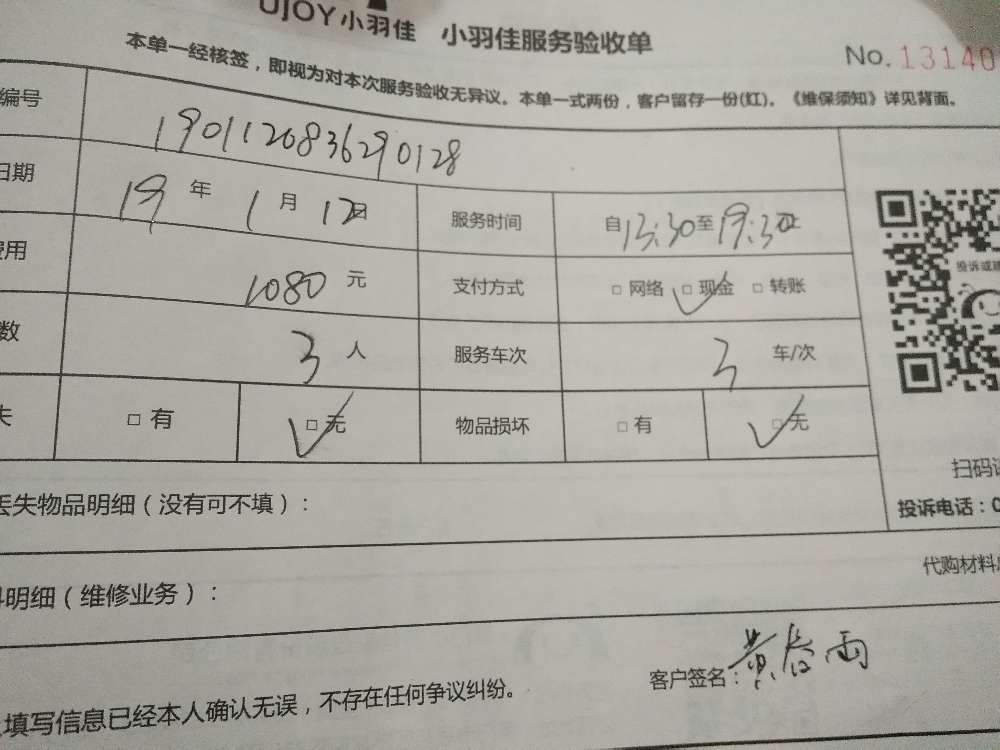 UJOY小羽佳 小羽佳服务验收单
No. 13140
本单一经核签，即视为对本次服务验收无异议。本单一式两份，客户留存一份(红)。《维保须知》详见背面。
编号 1901120836290128
日期 19 年 1 月 12日 服务时间 自13:30至19:30止
费用 1080 元 支付方式 □ 网络 □ 现金 □ 转账
数 3 人 服务车次 3 车/次
失 □ 有 □ 无 物品损坏 □ 有 □ 无
投诉或
扫码
丢失物品明细（没有可不填）：
投诉电话：0
明细（维修业务）：
代购材料
填写信息已经本人确认无误，不存在任何争议纠纷。
客户签名：黄春雨